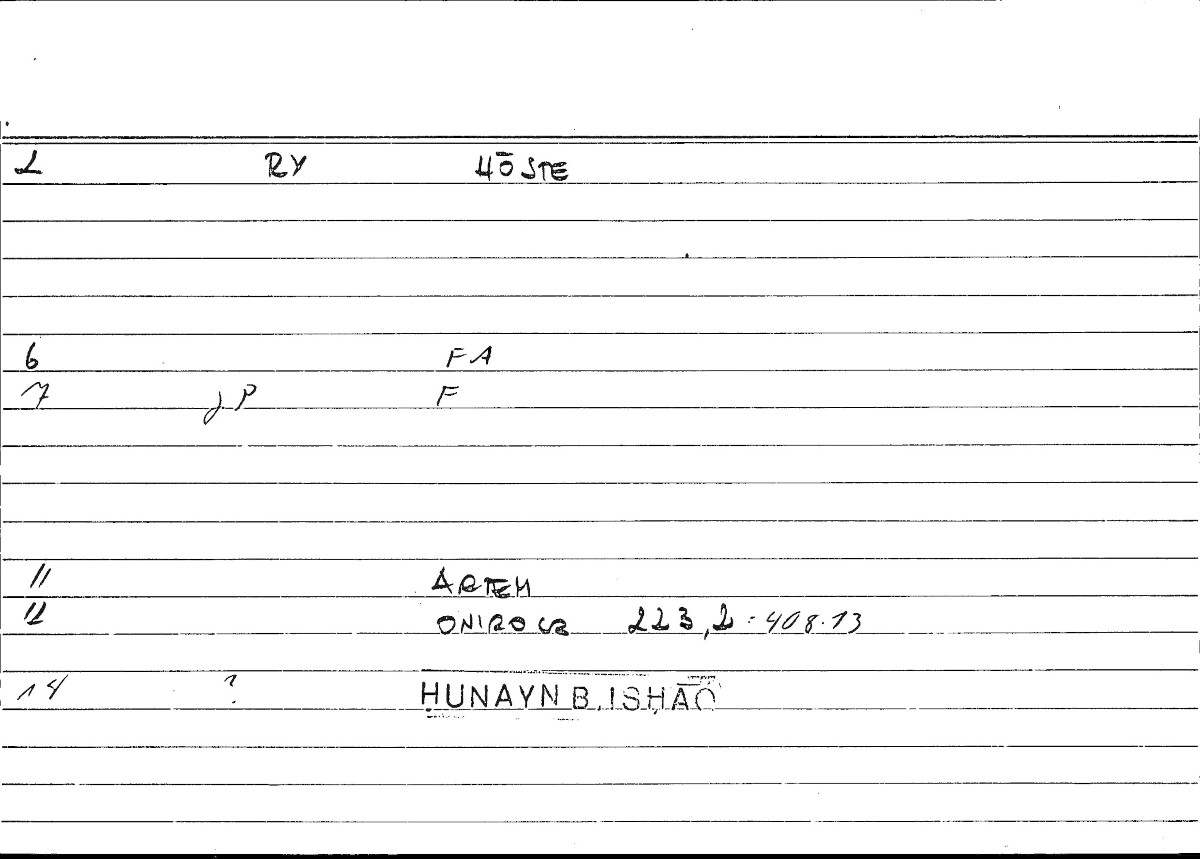 2 RY HŌSTE
6 FA
7 JP F
11 ARTEM
12 ONIROCR 223,2 - 408.13
14 ? ḤUNAYN B. ISḤĀQ